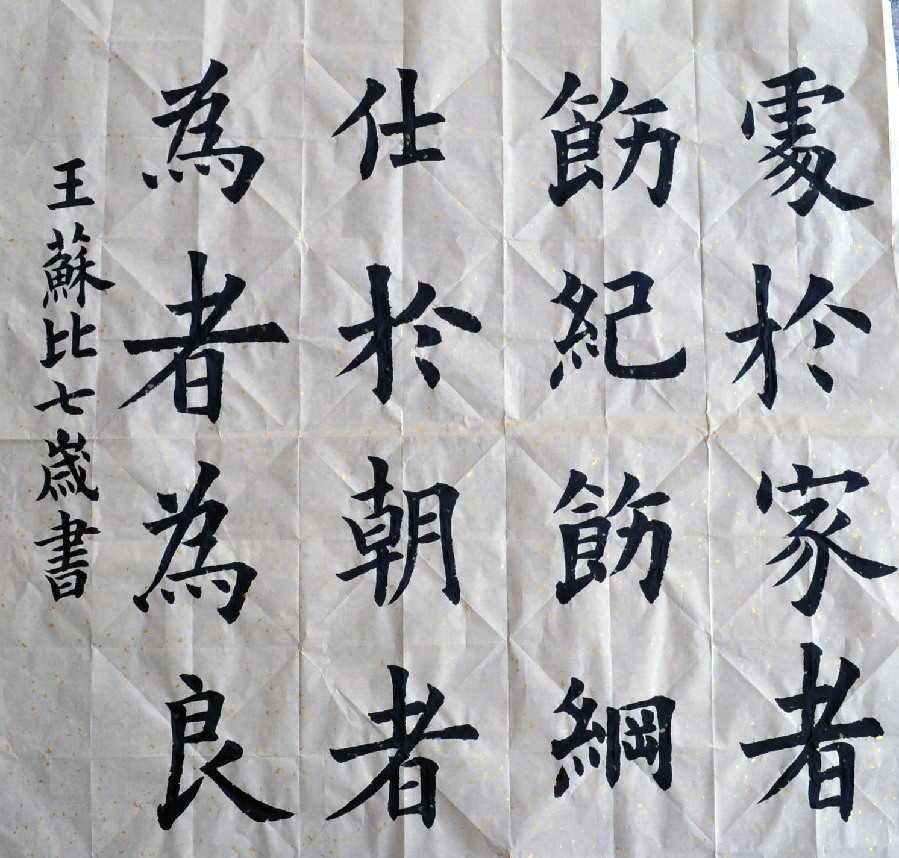 處於家者
飭紀飭綱
仕於朝者
為者為良
王蘇比七歲書